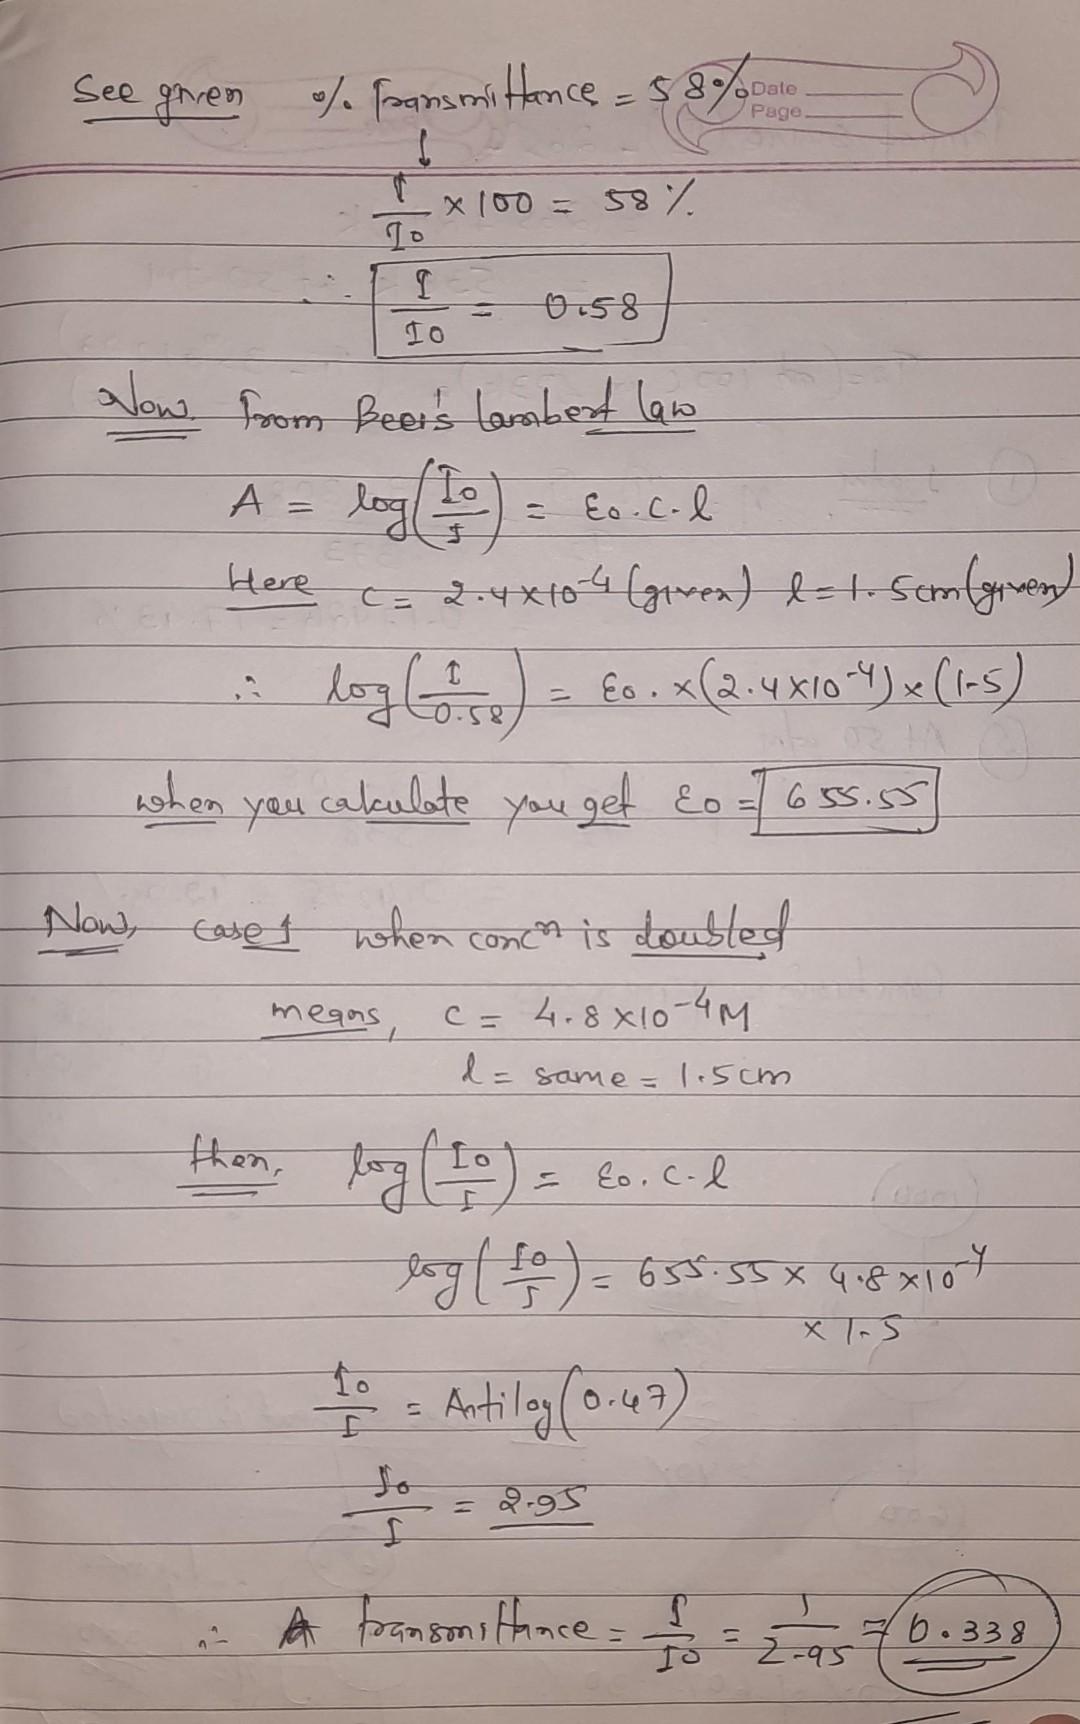 Date
Page
See given % Transmittance = 58%
↓
I/I0 × 100 = 58 %
∴ I/I0 = 0.58
Now From Beer's lambert law
A = log(I0/I) = ε0.C.l
Here C = 2.4×10^-4 (given) l = 1.5cm (given)
∴ log(1/0.58) = ε0.×(2.4×10^-4)×(1.5)
when you calculate you get ε0 = 655.55
Now, case 1 when conc^n is doubled
means, C = 4.8×10^-4 M
l = same = 1.5cm
then, log(I0/I) = ε0.C.l
log(I0/I) = 655.55 × 4.8×10^-4
× 1.5
I0/I = Antilog(0.47)
I0/I = 2.95
∴ Transmittance = I/I0 = 1/2.95 = 0.338